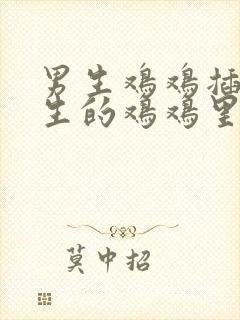 男生鸡鸡插
生的鸡鸡里
莫中招